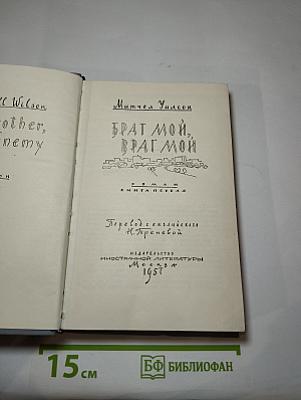 ll Wilson
rother,
nemy
Митчел Уилсон
БРАТ МОЙ,
ВРАГ МОЙ
РОМАН
КНИГА ПЕРВАЯ
Перевод с английского
Н. Треневой
ИЗДАТЕЛЬСТВО
ИНОСТРАННОЙ ЛИТЕРАТУРЫ
Москва
195
15 см
БФ БИБЛИОФАН